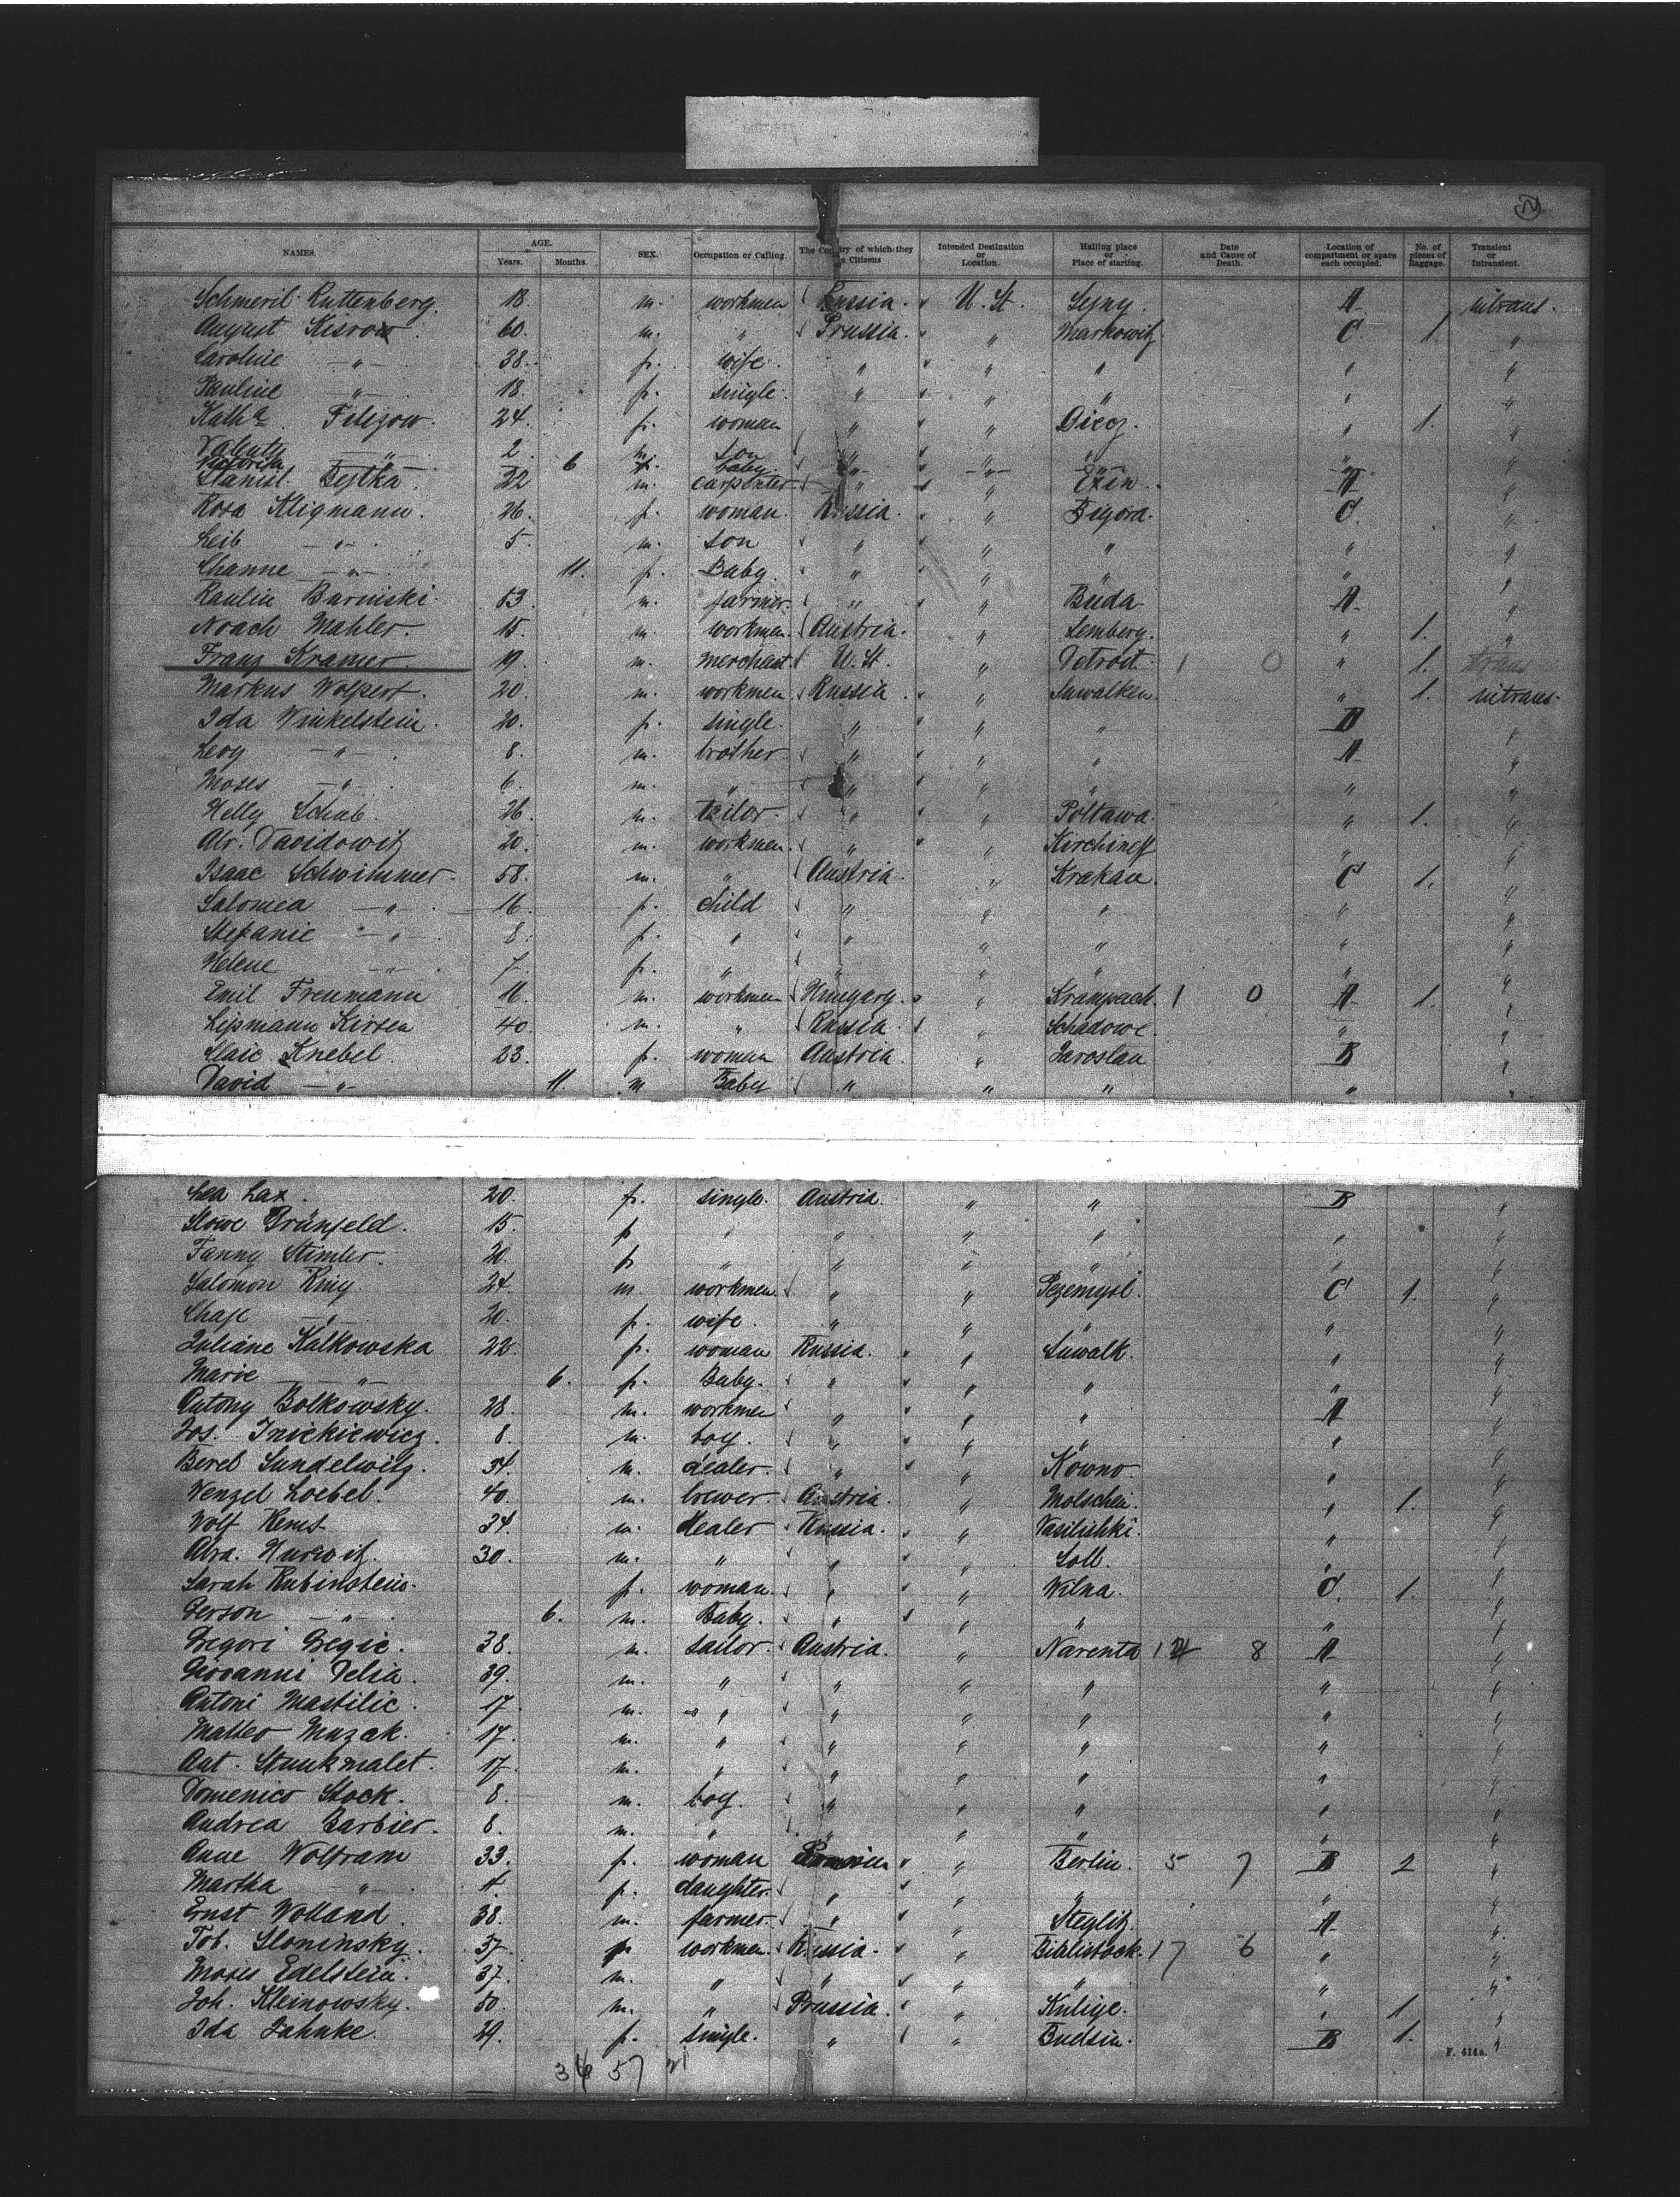 NAMES. AGE. Years. Months. SEX. Occupation or Calling. The Country of which they are Citizens Intended Destination or Location. Hailing place or Place of starting. Date and Cause of Death. Location of compartment or space each occupied. No. of pieces of Baggage. Transient or Intransient.
Schmeril Ruttenberg. 18. m. workmen Russia. U. St. Sejny. A. intrans.
August Kisrow 60. m. " Prussia. " Markowitz C. 1. "
Caroline -"- 38. f. wife. " " " " "
Pauline -"- 18. f. single. " " " " "
Kath a Filizow. 24. f. woman " " " 1. "
Valenty -"- 2. m. son " " " " "
Victoria 6 f. baby. " -"- -"- -"-
Stanisl. Bejtka. 22 m. carpenter " " Exin. A "
Rosa Kligmann. 26. f. woman. Russia. " C. "
Leib -"- 5. m. son " " " " "
Channe -"- 11. f. Baby. " " " " "
Raulin Burinski. 53. m. farmer. " " Buda A. "
Noach Mahler. 15. m. workmen. Austria. " Lemberg. " 1. "
Franz Kramer. 19. m. merchant U. St. " Detroit. 1 0 " 1. trans
Markus Wolpert. 20. m. workmen Russia. " Suwalken. " 1. intrans.
Ida Winkelstein. 20. f. single. " " " B "
Levy -"- 8. m. brother " " " A "
Moses -"- 6. m. " " " " " "
Helly Schub. 26. m. tailor. " " Poltawa. " 1. "
Abr. Davidowitz 20. m. workmen. " " Kirchineff " "
Isaac Schwimmer. 58. m. " Austria. " Krakau. C 1. "
Salomea -"- 16. f. child " " " " "
Stefanie -"- 8. f. " " " " " "
Helene -"- 7. f. " " " " " "
Emil Freumann 16. m. workmen Hungary. " Krampach. 1 0 A 1. "
Lipmann Kirsen 40. m. " Russia. " Schadowe. " "
Knebel. 23. f. woman Austria. " Jaroslau B "
David -"- 11. m Baby " " " " "
Lea Lax. 20. f. single. Austria. " " B "
Slowe Grünfeld. 15. f " " " " " "
Fanny Stimler. 20. f " " " " " "
Salomon Ring. 24. m. workmen " " Pezemysl. C 1. "
Chaje -"- 20. f. wife. " " " "
Juliane Kalkowska 22. f. woman Russia. " Suwalk. " "
Marie -"- 6. f. Baby. " " " " "
Antony Bolkowsky. 28. m. workmen " " " A "
Jos. Inickiewicz. 8. m. boy. " " " " "
Berel Sundelwitz. 34. m. dealer. " " Kowno. " "
Wenzel Loebel. 40. m. brewer. Austria. " Molschen. " 1. "
Wolf Kems 34. m. dealer Russia. " Vasilishki. " "
Abra. Hurwitz. 30. m. " " " Soll. " "
Sarah Rubinstein. f. woman. " " Wilna. C. 1. "
Gerson -"- 6. m. Baby. " " " " "
Gregori Gregic. 38. m. sailor. Austria. " Narenta 8 A "
Giovanni Delia. 39. m. " " " " " "
Antoni Mastilic. 17. m. " " " " " "
Matteo Muzak. 17. m. " " " " " "
Ant. Stuukmalet. 17. m. " " " " " "
Domenico Stock. 8. m. boy. " " " " "
Andrea Barbier. 8. m. " " " " " "
Anne Wolfram 33. f. woman " Berlin. 5 7 B 2 "
Martha -"- f. daughter. " " " " "
Ernst Wolland. 38. m. farmer. " " Steglitz. A "
Tob. Sloninsky. 37. workmen. Russia. " Biblistock. 17 6 " "
Moses Edelstein. 37. m. " " " " "
Joh. Kleinowsky. 50. m. " Prussia. " Kulige. " 1. "
Ida Jahnke. 29. f. single. " " Budsin. B 1. "
57 21
F. 414a.